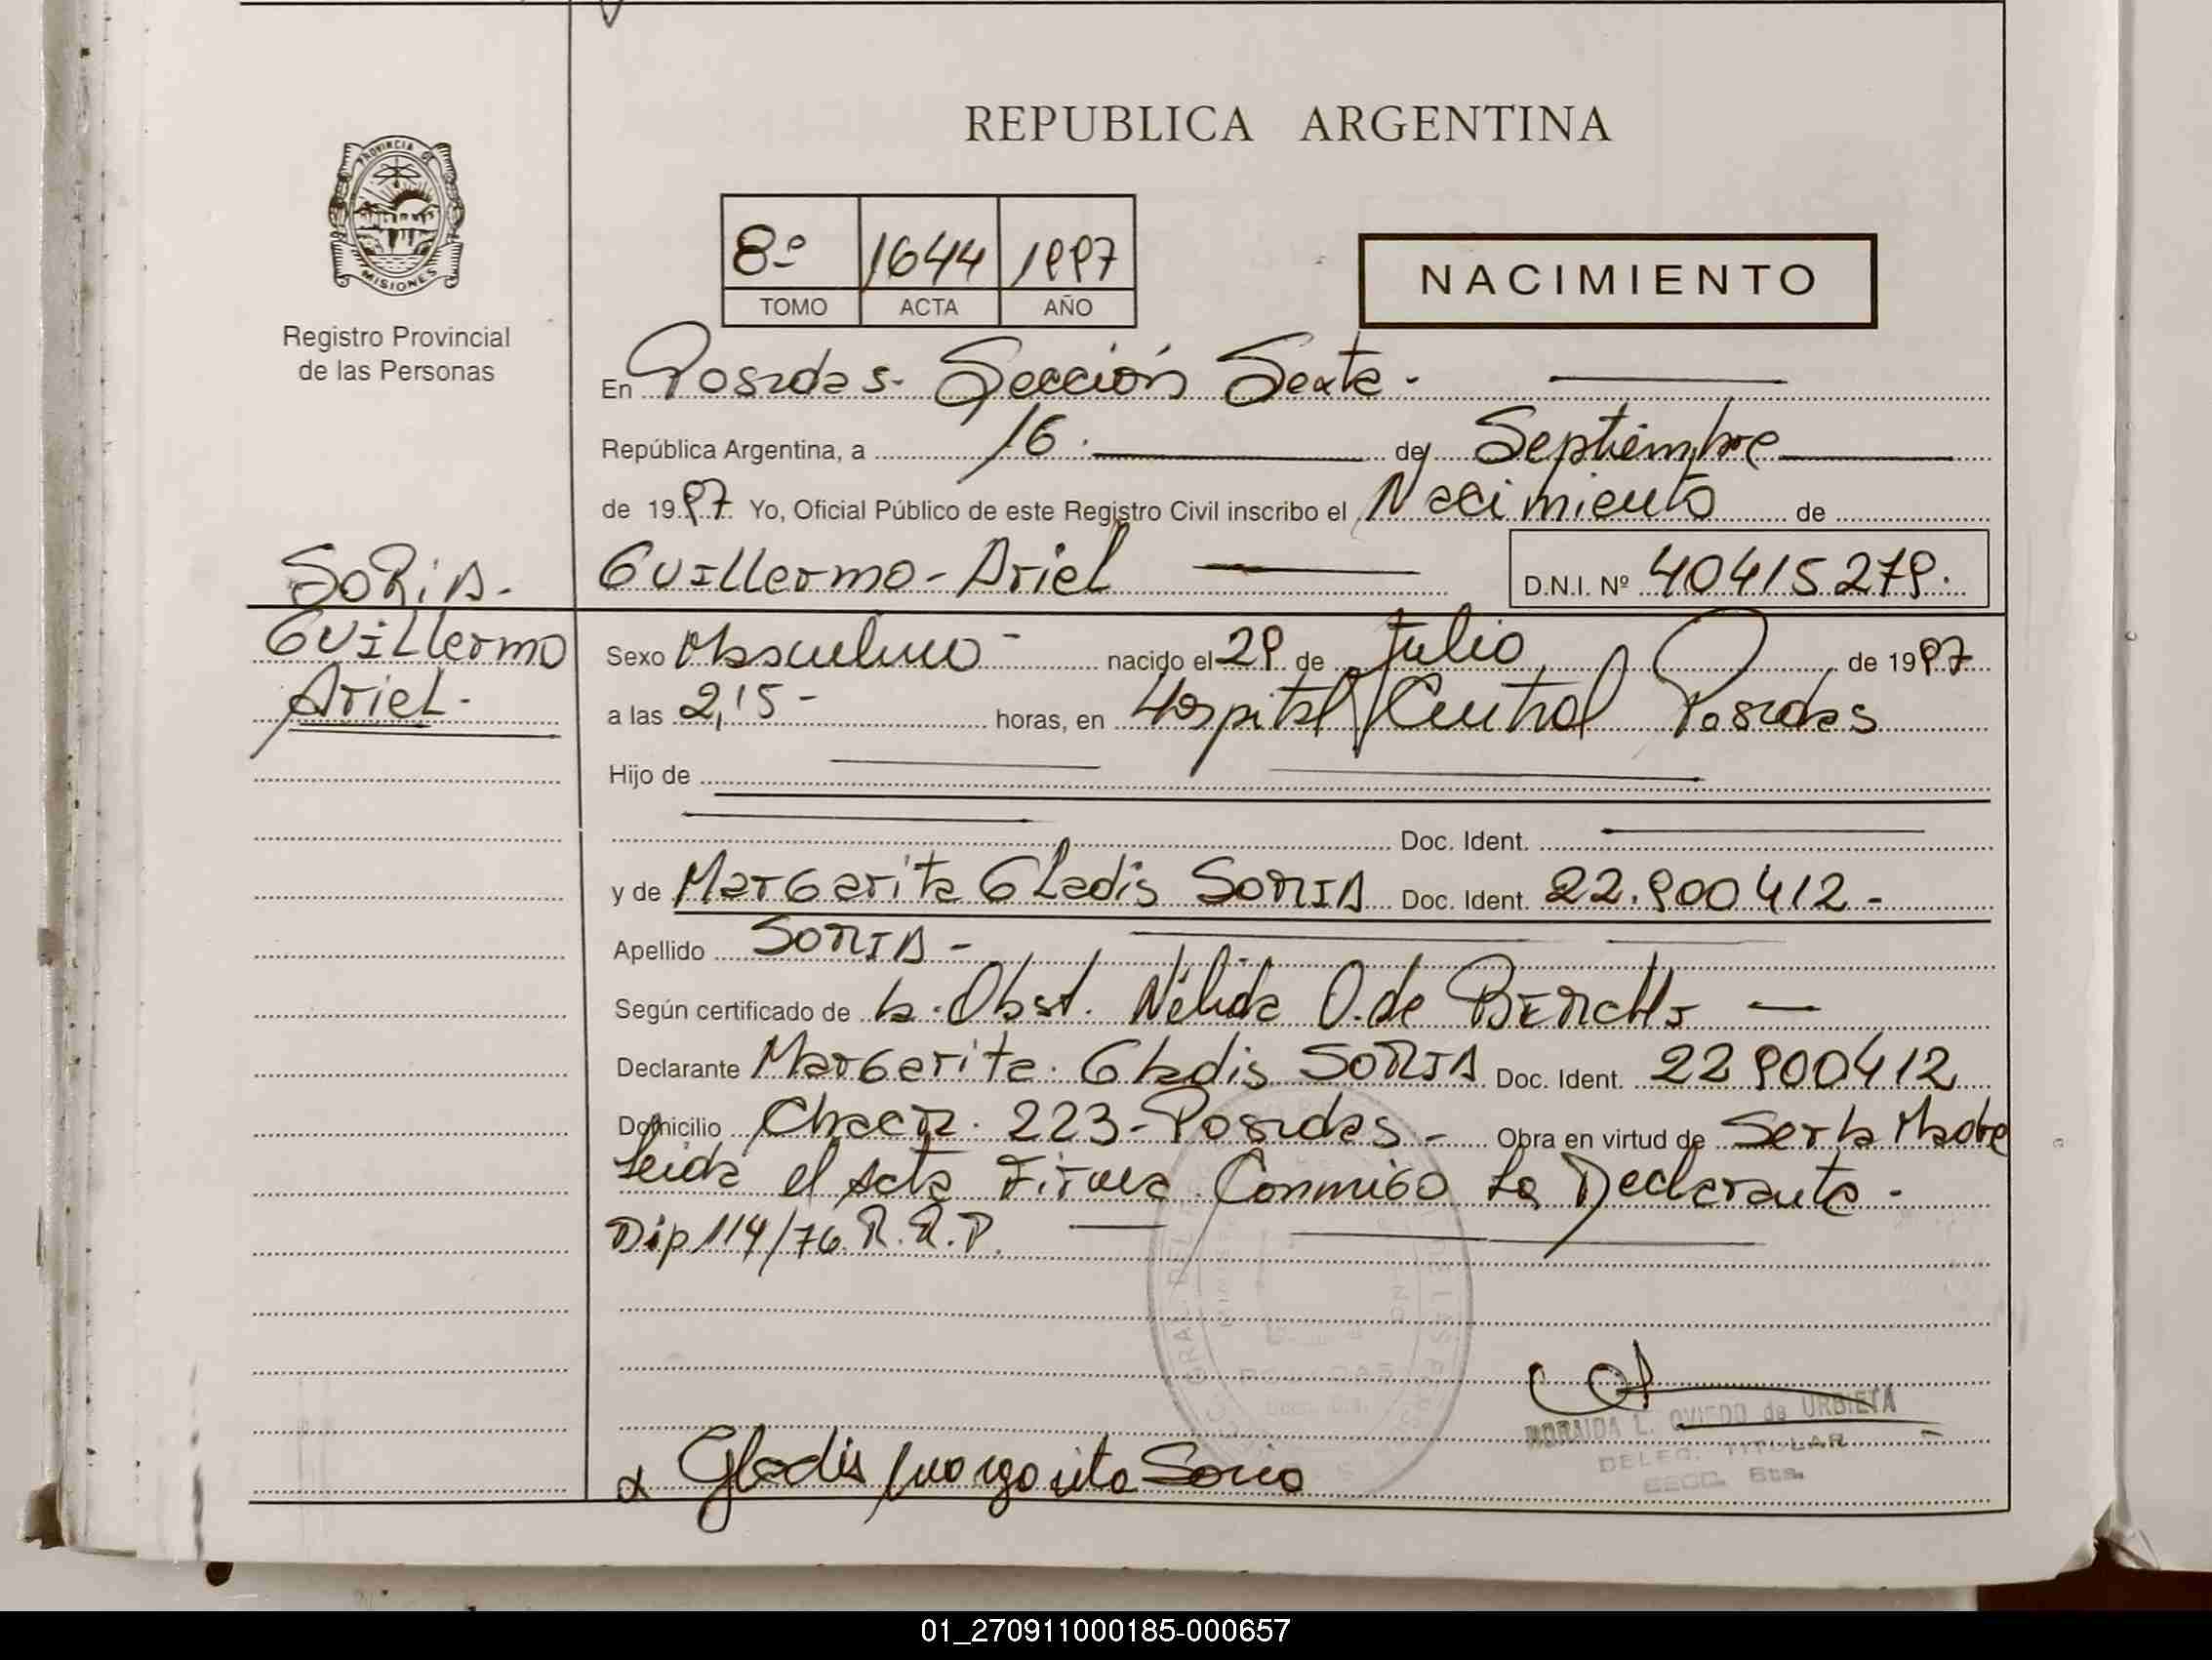 REPUBLICA ARGENTINA
PROVINCIA DE
MISIONES
Registro Provincial
de las Personas
8º 1644 1997
TOMO ACTA AÑO
NACIMIENTO
En Posadas- Sección Sexta -
República Argentina, a 16. de Septiembre
de 1997 Yo, Oficial Público de este Registro Civil inscribo el Nacimiento de
Guillermo - Ariel D.N.I. Nº 40415279.
SORIA-
Guillermo
Ariel-
Sexo Masculino - nacido el 29 de Julio de 1997
a las 2,15 - horas, en Hospital Central Posadas
Hijo de
Doc. Ident.
y de Margarita Gladis SORIA Doc. Ident. 22.900412-
Apellido SORIA -
Según certificado de la Obst. Nélida O. de
Declarante Margarita Gladis SORIA Doc. Ident. 22900412
Domicilio 223- Posadas - Obra en virtud de Ser la Madre
Leida el Acta Firma Conmigo La Declarante -
Dip 114/76 R.R.P.
L. OVIEDO de URBIETA
DELEG. TITULAR
SECC. 6ta.
x Gladis Margarita Soria
01_270911000185-000657